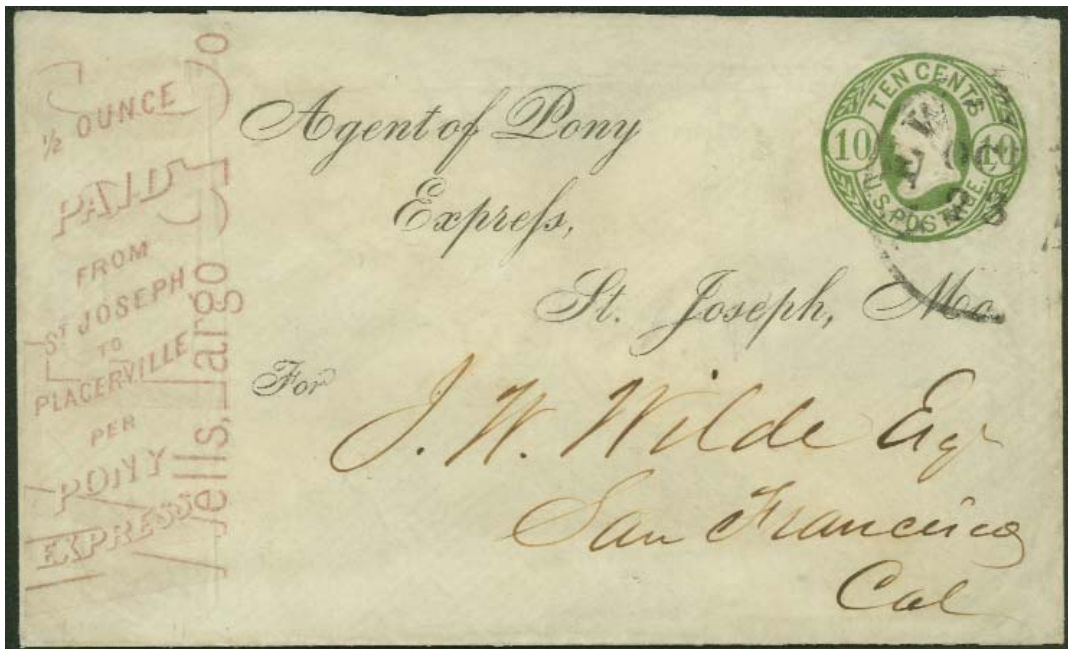 ½ OUNCE
PAID
FROM
ST JOSEPH
TO
PLACERVILLE
PER
PONY
EXPRESS
Wells, Fargo & Co
Agent of Pony
Expreſs,
St. Joseph, Mo.
For
J. W. Wilde Esq
San Francisco
Cal
TEN CENTS
10 10
U.S. POSTAGE.
NEW
OCT
23